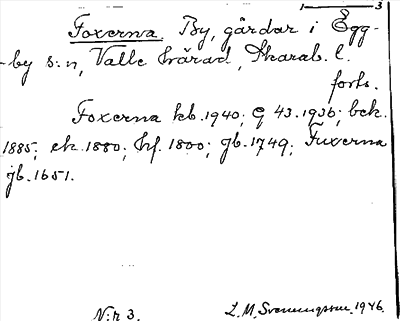 1 — 3
Foxerna. By, gårdar i Egg-
by s:n, Valle härad, Skarab. l.
forts.
Foxerna kb. 1940; G 43. 1936; bek.
1885; ek. 1880; hf. 1800; gb. 1749; Fuxerna
jb. 1651.
N:r 3. L. M. Svenungsson. 1946.